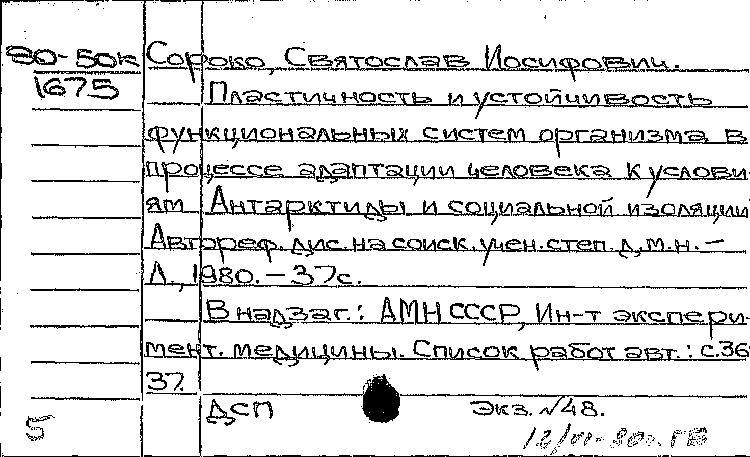 80-50к Сороко, Святослав Иосифович.
1675 Пластичность и устойчивость
функциональных систем организма в
процессе адаптации человека к услови-
ям Антарктиды и социальной изоляции
Автореф. дис. на соиск. учен. степ. д.м.н. –
Л., 1980. – 37с.
В надзаг.: АМН СССР, Ин-т экспери-
мент. медицины. Список работ авт.: с.36-
37.
ДСП Экз. №48.
5 12/VI-80г. ГВ